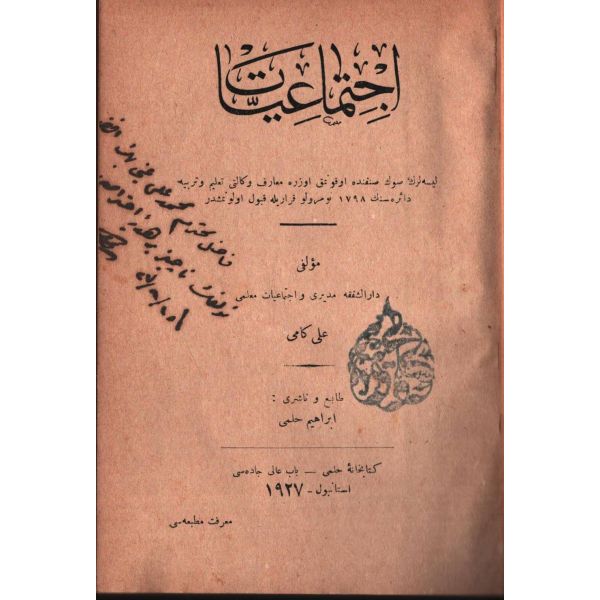 اجتماعيات
ليسه‌لرك صوك صنفنده اوقوتمق اوزره معارف وكالتى تعليم وتربيه
دائره‌سنك ١٧٩٨ نومرولو قراريله قبول اولونمشدر
مؤلفى
دارالشفقه مديرى و اجتماعيات معلمى
على كامى
طابع و ناشرى :
ابراهيم حلمى
كتابخانهٔ حلمى — باب عالى جاده‌سى
استانبول - ١٩٢٧
معرفت مطبعه‌سى